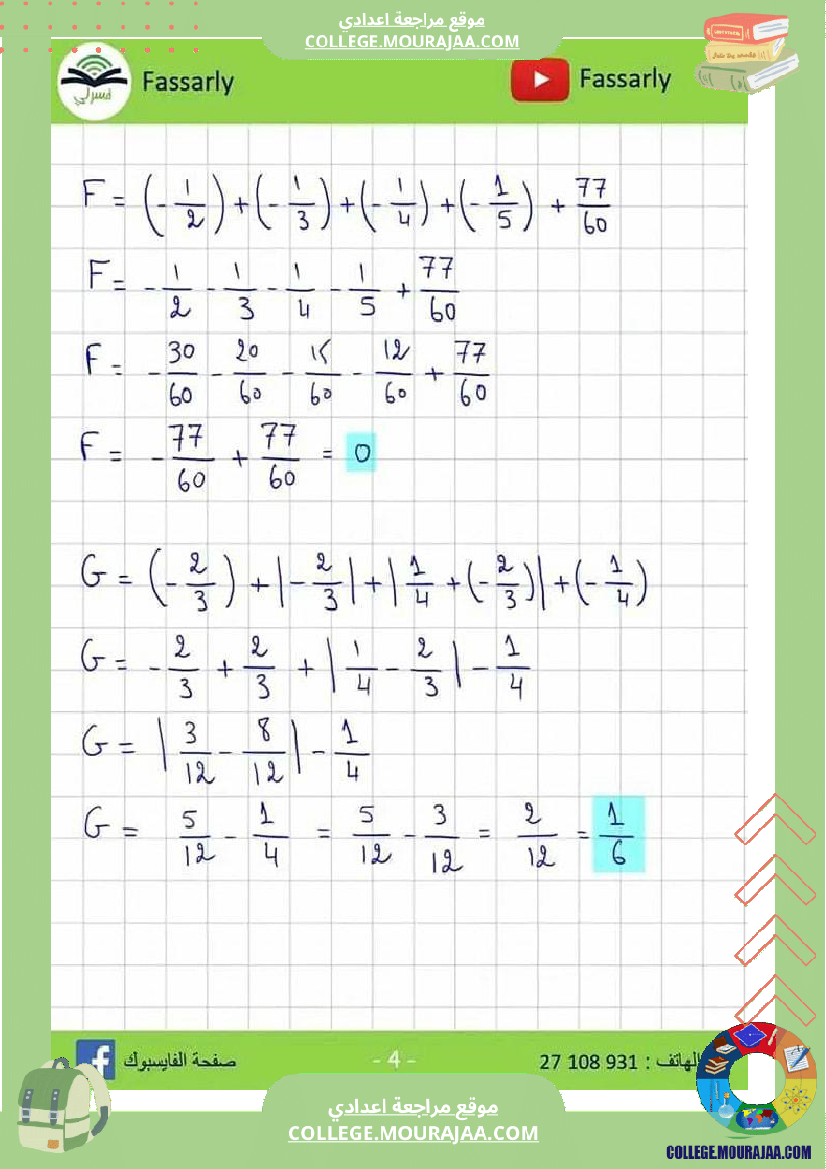 موقع مراجعة اعدادي
COLLEGE.MOURAJAA.COM
فسرلي Fassarly Fassarly
F = (-1/2) + (-1/3) + (-1/4) + (-1/5) + 77/60
F = -1/2 - 1/3 - 1/4 - 1/5 + 77/60
F = -30/60 - 20/60 - 15/60 - 12/60 + 77/60
F = -77/60 + 77/60 = 0
G = (-2/3) + |-2/3| + |1/4 + (-2/3)| + (-1/4)
G = -2/3 + 2/3 + |1/4 - 2/3| - 1/4
G = |3/12 - 8/12| - 1/4
G = 5/12 - 1/4 = 5/12 - 3/12 = 2/12 = 1/6
صفحة الفايسبوك - 4 - الهاتف : 27 108 931
موقع مراجعة اعدادي
COLLEGE.MOURAJAA.COM
COLLEGE.MOURAJAA.COM